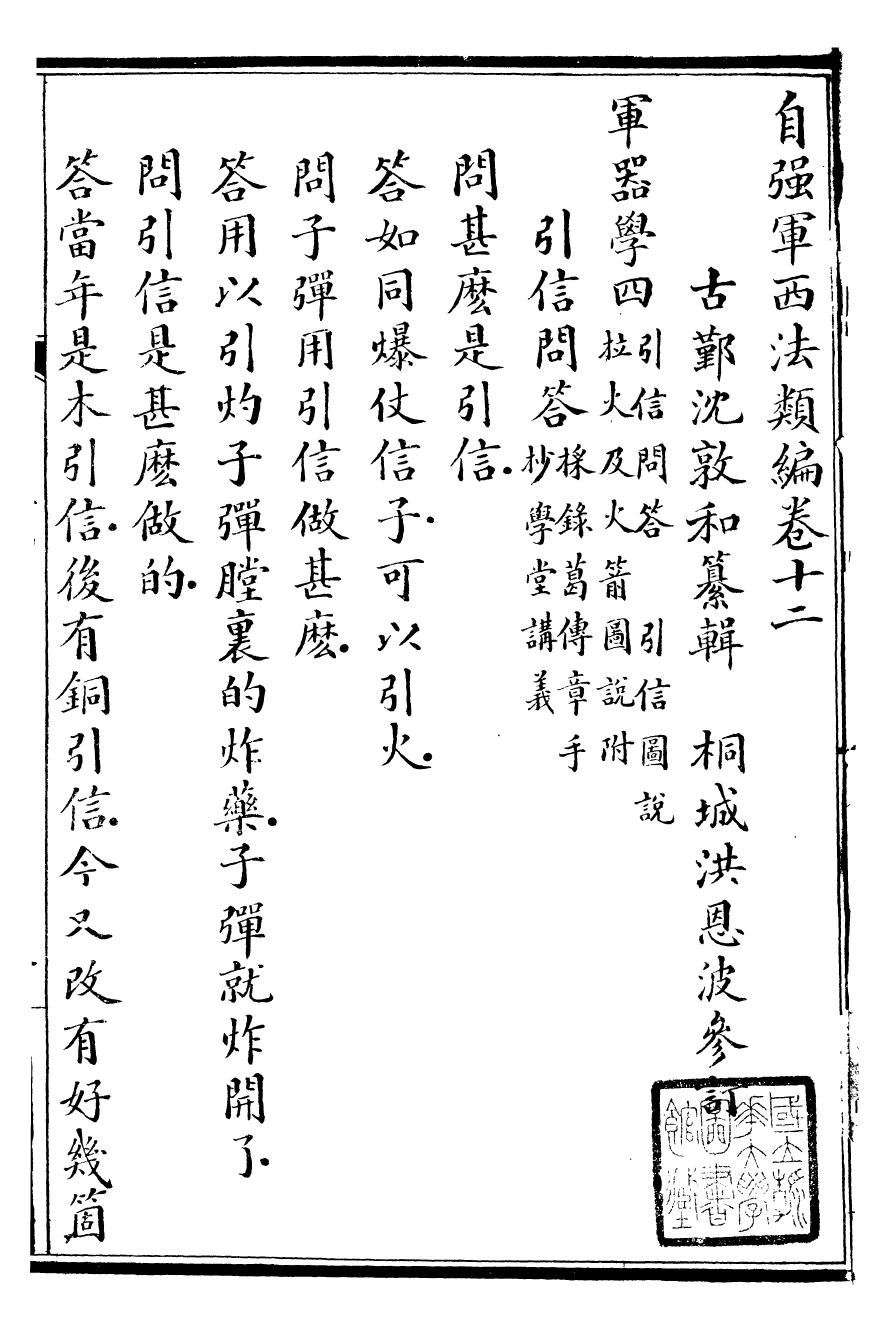 自强軍西法類編卷十二
古鄞沈敦和纂輯　桐城洪恩波參訂
軍器學四 引信問答　引信圖說
拉火及火箭圖說附
引信問答 採錄葛傳章手
抄學堂講義
問甚麽是引信.
答如同爆仗信子.可以引火.
問子彈用引信做甚麽.
答用以引灼子彈膛裏的炸藥.子彈就炸開了.
問引信是甚麽做的.
答當年是木引信.後有銅引信.今只改有好幾箇
國立清
華大學
圖書
館藏